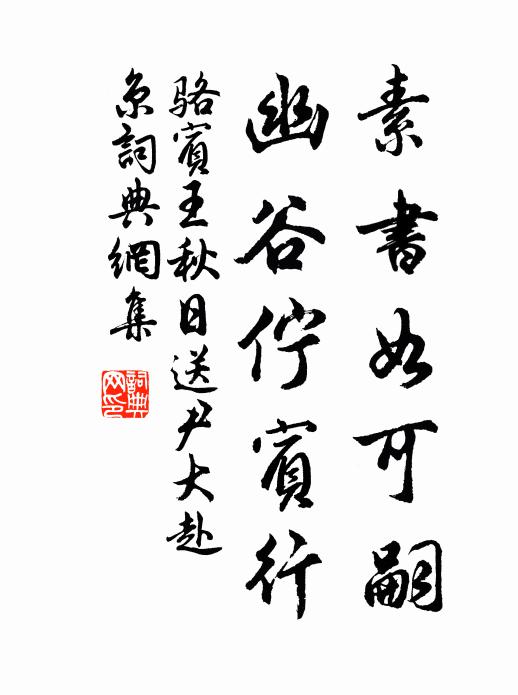 素書如可嗣
幽谷佇賓行
駱賓王秋日送尹大赴
京詞典網集
詞典
网印